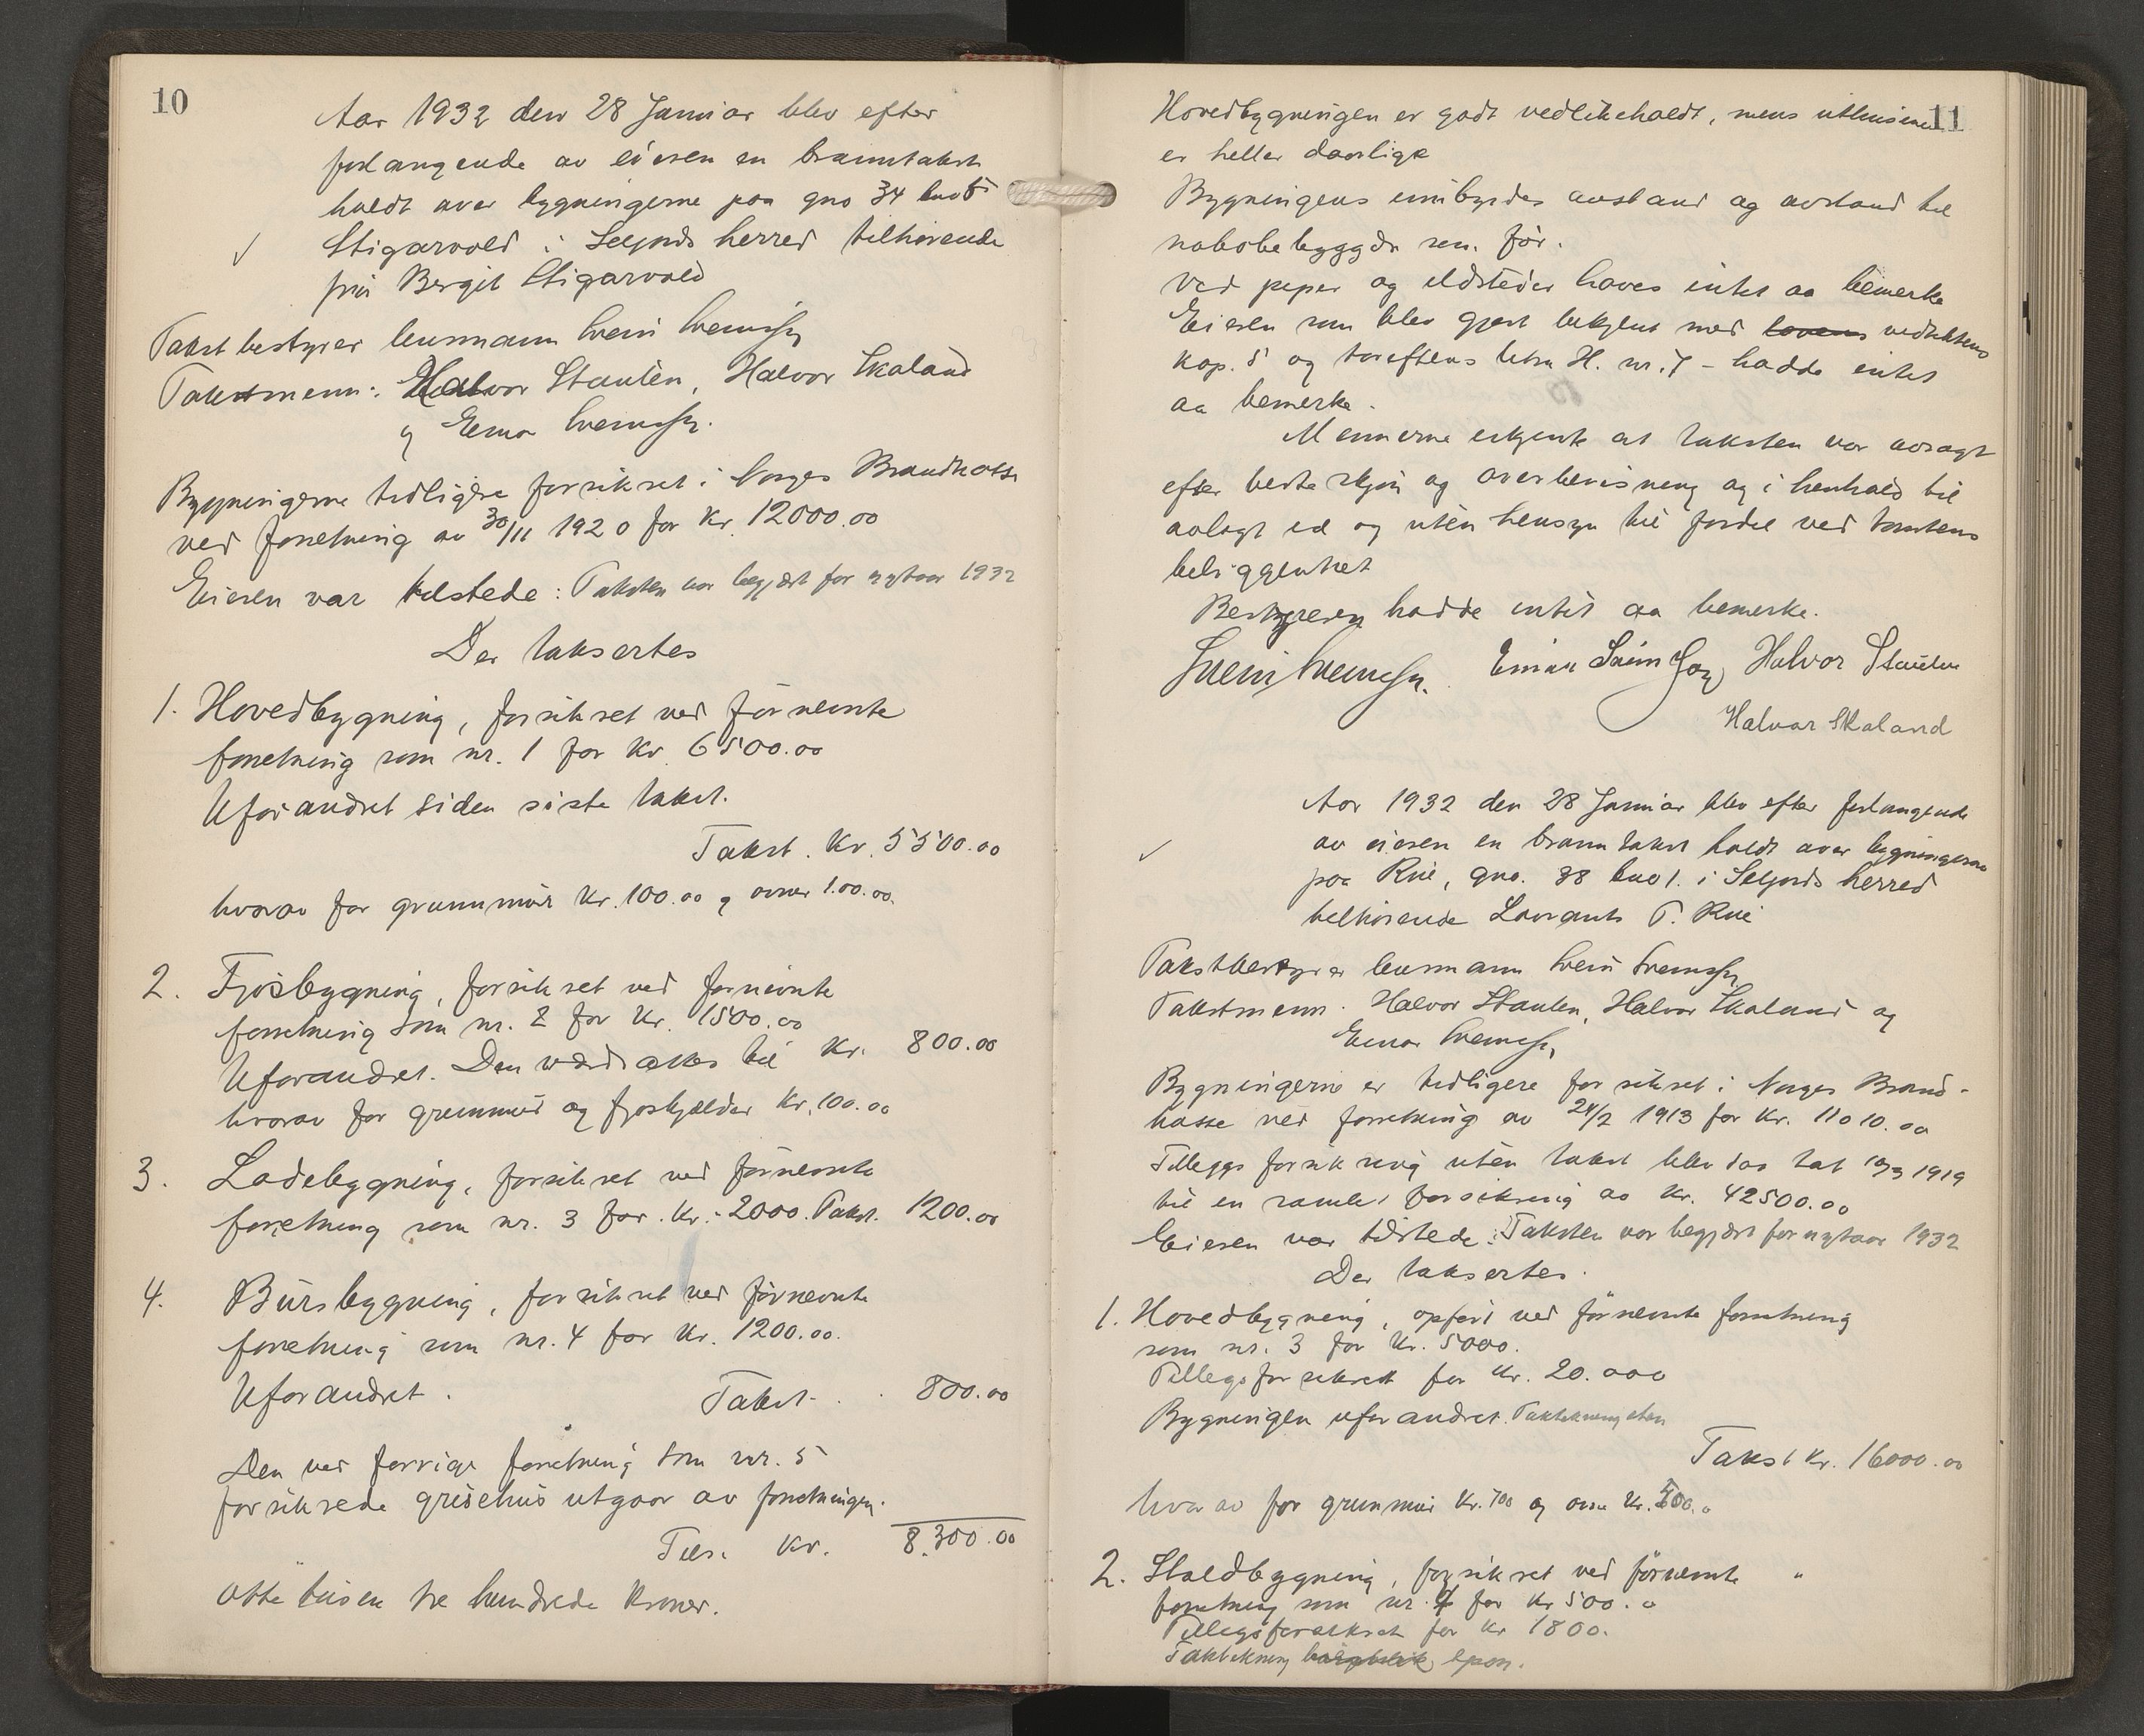 10
Aar 1932 den 28 Januar blev efter
forlangende av eieren en branntakst
holdt over bygningerne paa gno 34 bno 5
Stigarvold i Seljords herred tilhørende
fru Bergit Stigarvold
Takstbestyrer lensmann Svein Sveinssøn
Takstmenn: Halvor Staulen, Halvor Skaland
og Einar Sveinssøn.
Bygningerne tidligere forsikret i Norges Brandkasse
ved forretning av 30/11 1920 for Kr. 12000.00
Eieren var tilstede: Taksten var begjært for nytaar 1932
Der taksertes
1. Hovedbygning, forsikret ved førnevnte
forretning som nr. 1 for Kr. 6500.00
Uforandret siden siste takst.
Takst. Kr. 5500.00
hvorav for grunnmur Kr. 100.00 og ovner 100.00.
2. Fjøsbygning, forsikret ved førnevnte
forretning som nr. 2 for Kr. 1500.00
Uforandret. Den værdsættes til Kr. 800.00
hvorav for grunnmur og fjøskjælder Kr. 100.00
3. Ladebygning, forsikret ved førnevnte
forretning som nr. 3 for Kr. 2000. Takst. 1200.00
4. Bursbygning, forsikret ved førnevnte
forretning som nr. 4 for Kr. 1200.00.
Uforandret. Takst. 800.00
Den ved forrige forretning som nr. 5
forsikrede grisehus utgaar av forretningen.
Tils. Kr. 8.300.00
otte tusen tre hundrede kroner.
11
Hovedbygningen er godt vedlikeholdt, mens uthusene
er heller daarlige
Bygningens innbyrdes avstand og avstand til
nabobebyggelse som før.
Ved piper og ildsteder haves intet aa bemerke
Eieren som blev gjort bekjent med lovens vedtektens
kap. 5 og tariffens litra H. nr. 7 - hadde intet
aa bemerke.
Mennerne erkjente at taksten var avsagt
efter beste skjøn og overbevisning og i henhold til
avlagt ed og uten hensyn til fordel ved tomtens
beliggenhet
Bestyreren hadde intet aa bemerke.
Svein Sveinssøn. Einar Sveinssøn Halvor Staulen
Halvor Skaland
Aar 1932 den 28 Januar blev efter forlangende
av eieren en branntakst holdt over bygningerne
paa Rue, gno. 88 bno 1. i Seljords herred
tilhørende Lavrants T. Rue
Takstbestyrer lensmann Svein Sveinssøn
Takstmenn: Halvor Staulen, Halvor Skaland og
Einar Sveinssøn
Bygningerne er tidligere forsikret i Norges Brand-
kasse ved forretning av 24/2 1913 for Kr. 11010.00
Tilleggsforsikring uten takst blev saa tat 1919
til en samlet forsikring av Kr. 42500.00
Eieren var tilstede: Taksten var begjært for nytaar 1932
Der taksertes.
1. Hovedbygning, opført ved førnevnte forretning
som nr. 3 for Kr. 5000.
Tillegsforsikret for Kr. 20.000
Bygningen uforandret. Taktekning
Takst Kr. 16000.00
hvorav for grunnmur Kr. 700 og ovne Kr.
2. Staldbygning, forsikret ved førnevnte "
forretning som nr. 4 for Kr 500.0
Tillegsforsikret for Kr 1800.
Taktekning spon.